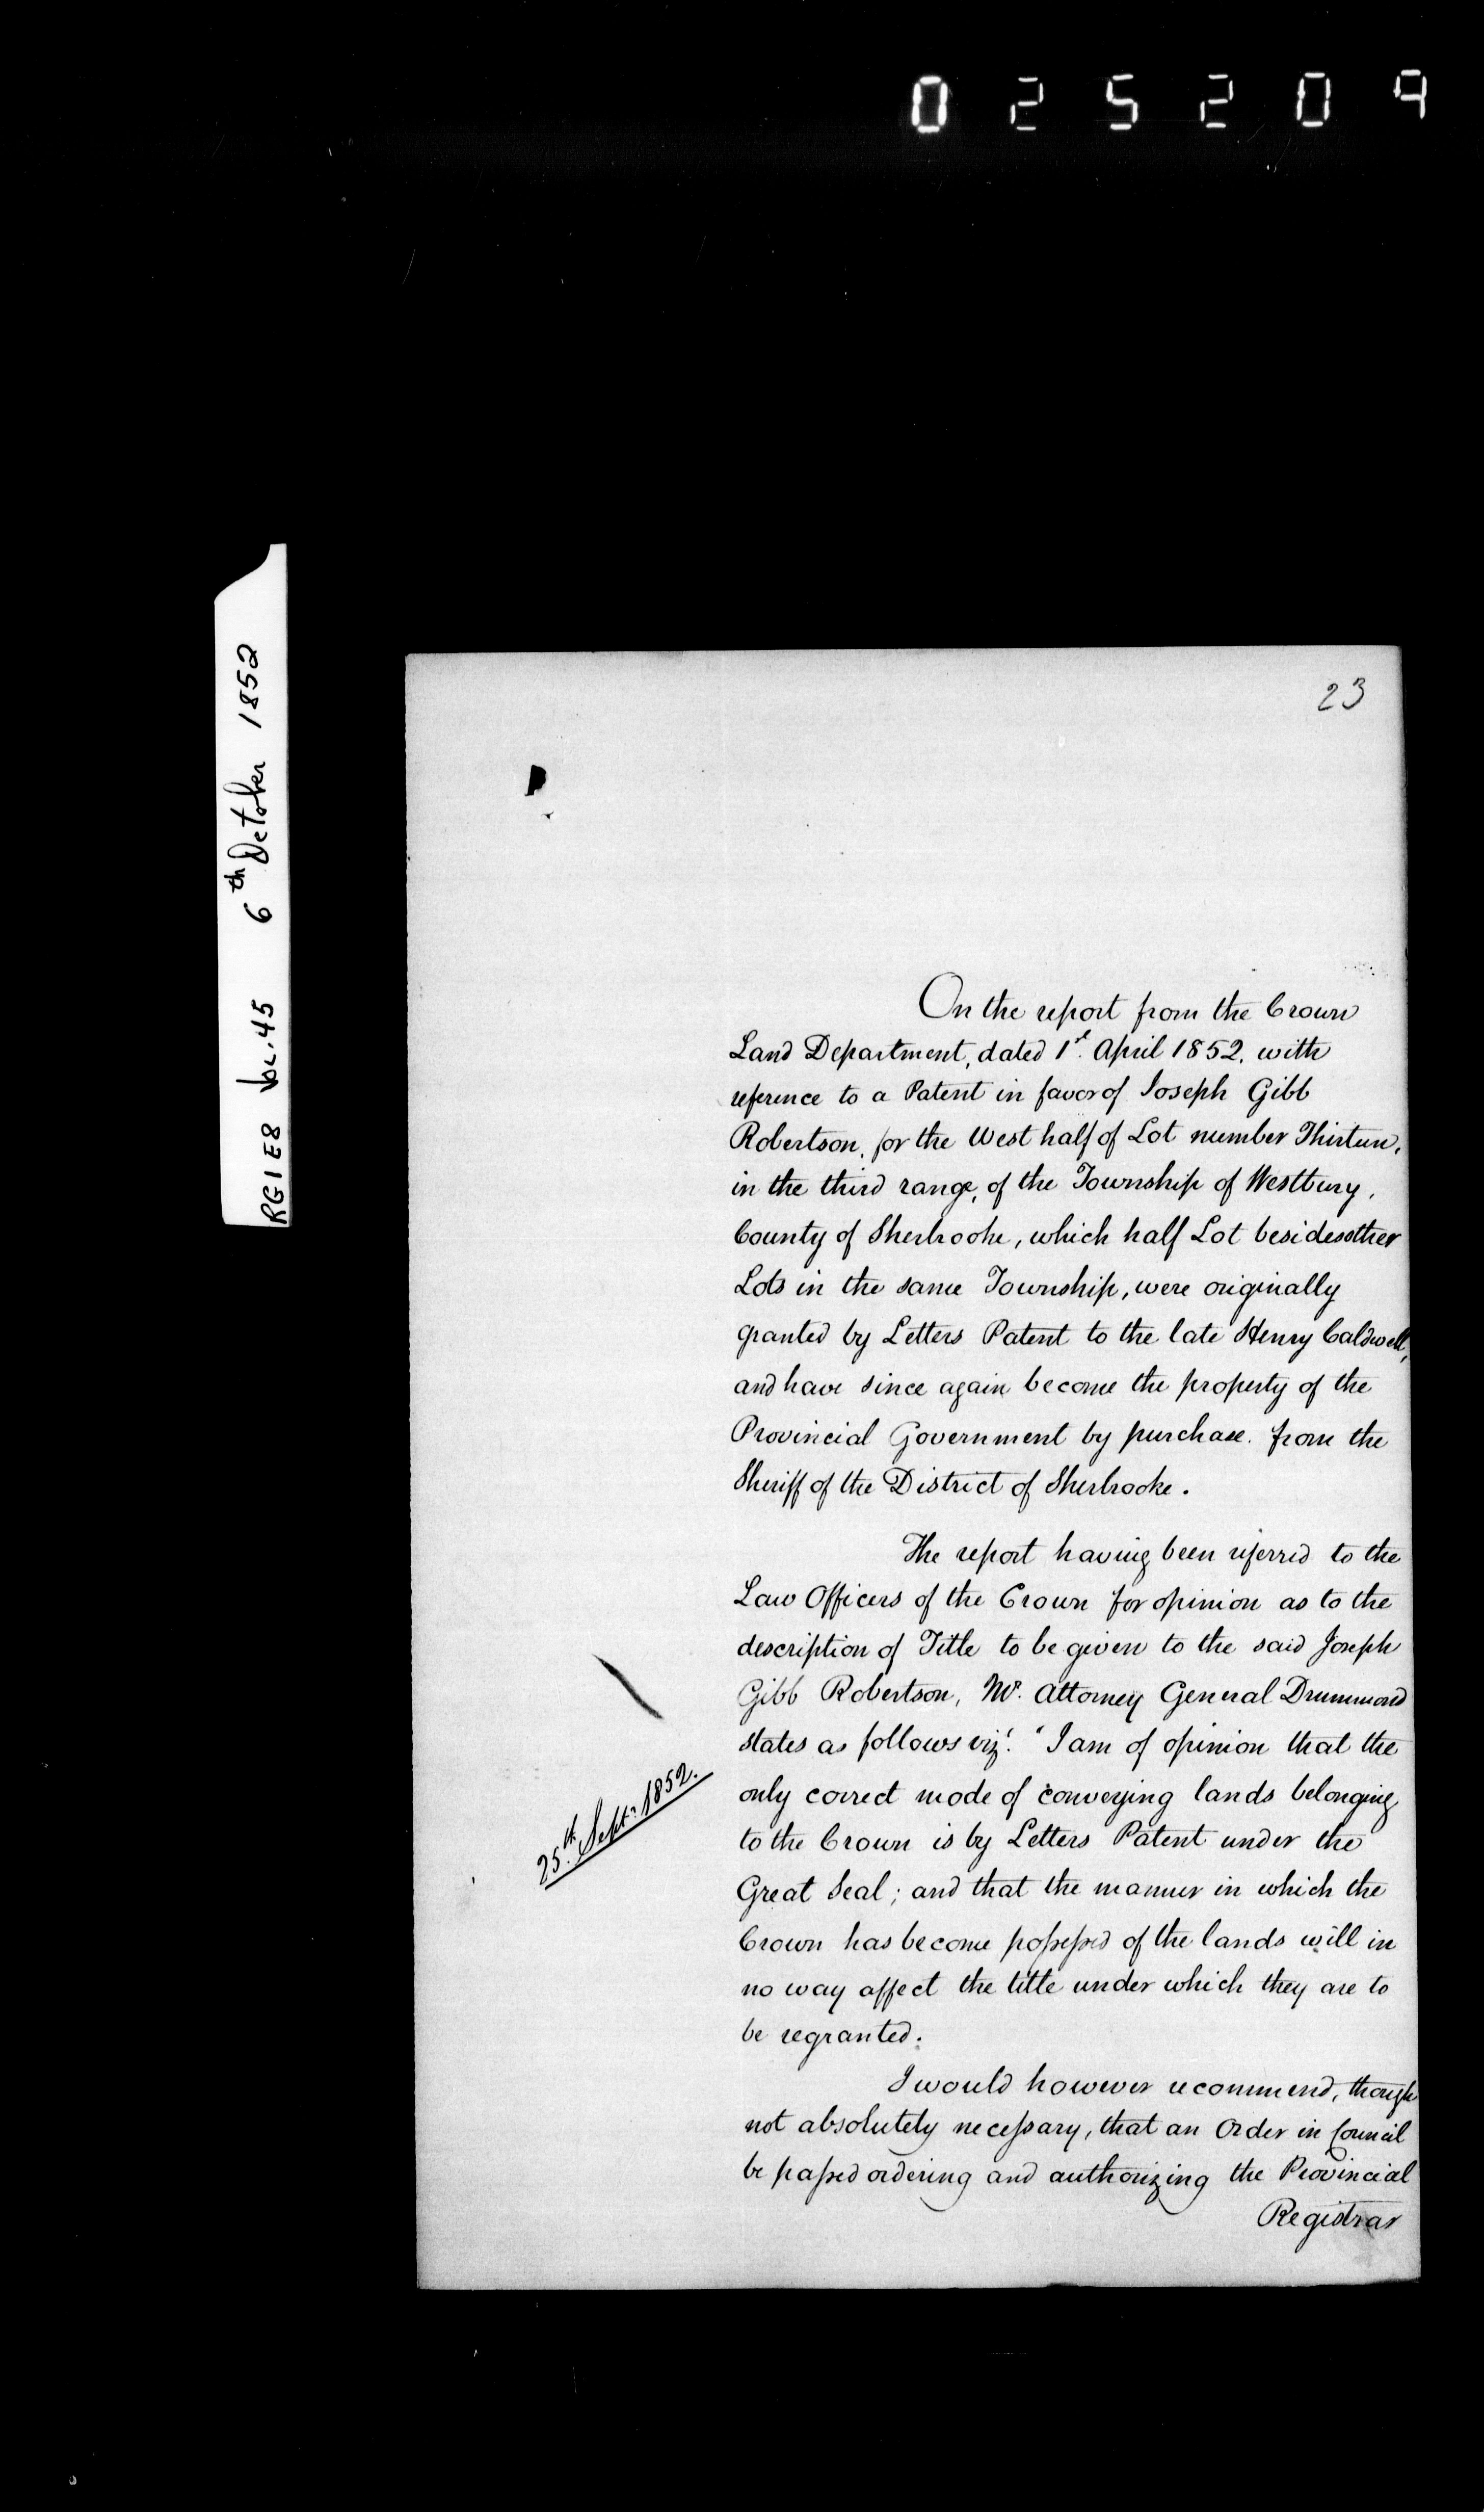 025209
RG1E8 Vol. 45 6th October 1852
23
On the report from the Crown
Land Department, dated 1st. April 1852, with
reference to a Patent in favor of Joseph Gibb
Robertson, for the West half of Lot number Thirteen,
in the third range, of the Township of Westbury,
County of Sherbrooke, which half Lot besides other
Lots in the same Township, were originally
granted by Letters Patent to the late Henry Caldwell,
and have since again become the property of the
Provincial Government by purchase. from the
Sheriff of the District of Sherbrooke.
The report having been referred to the
Law Officers of the Crown for opinion as to the
description of Title to be given to the said Joseph
Gibb Robertson, Mr. Attorney General Drummond
states as follows vizt. "I am of opinion that the
only correct mode of conveying lands belonging
to the Crown is by Letters Patent under the
Great Seal; and that the manner in which the
Crown has become possessed of the lands will in
no way affect the title under which they are to
be regranted.
25th. Sept: 1852.
I would however recommend, though
not absolutely necessary, that an Order in Council
be passed ordering and authorizing the Provincial
Registrar